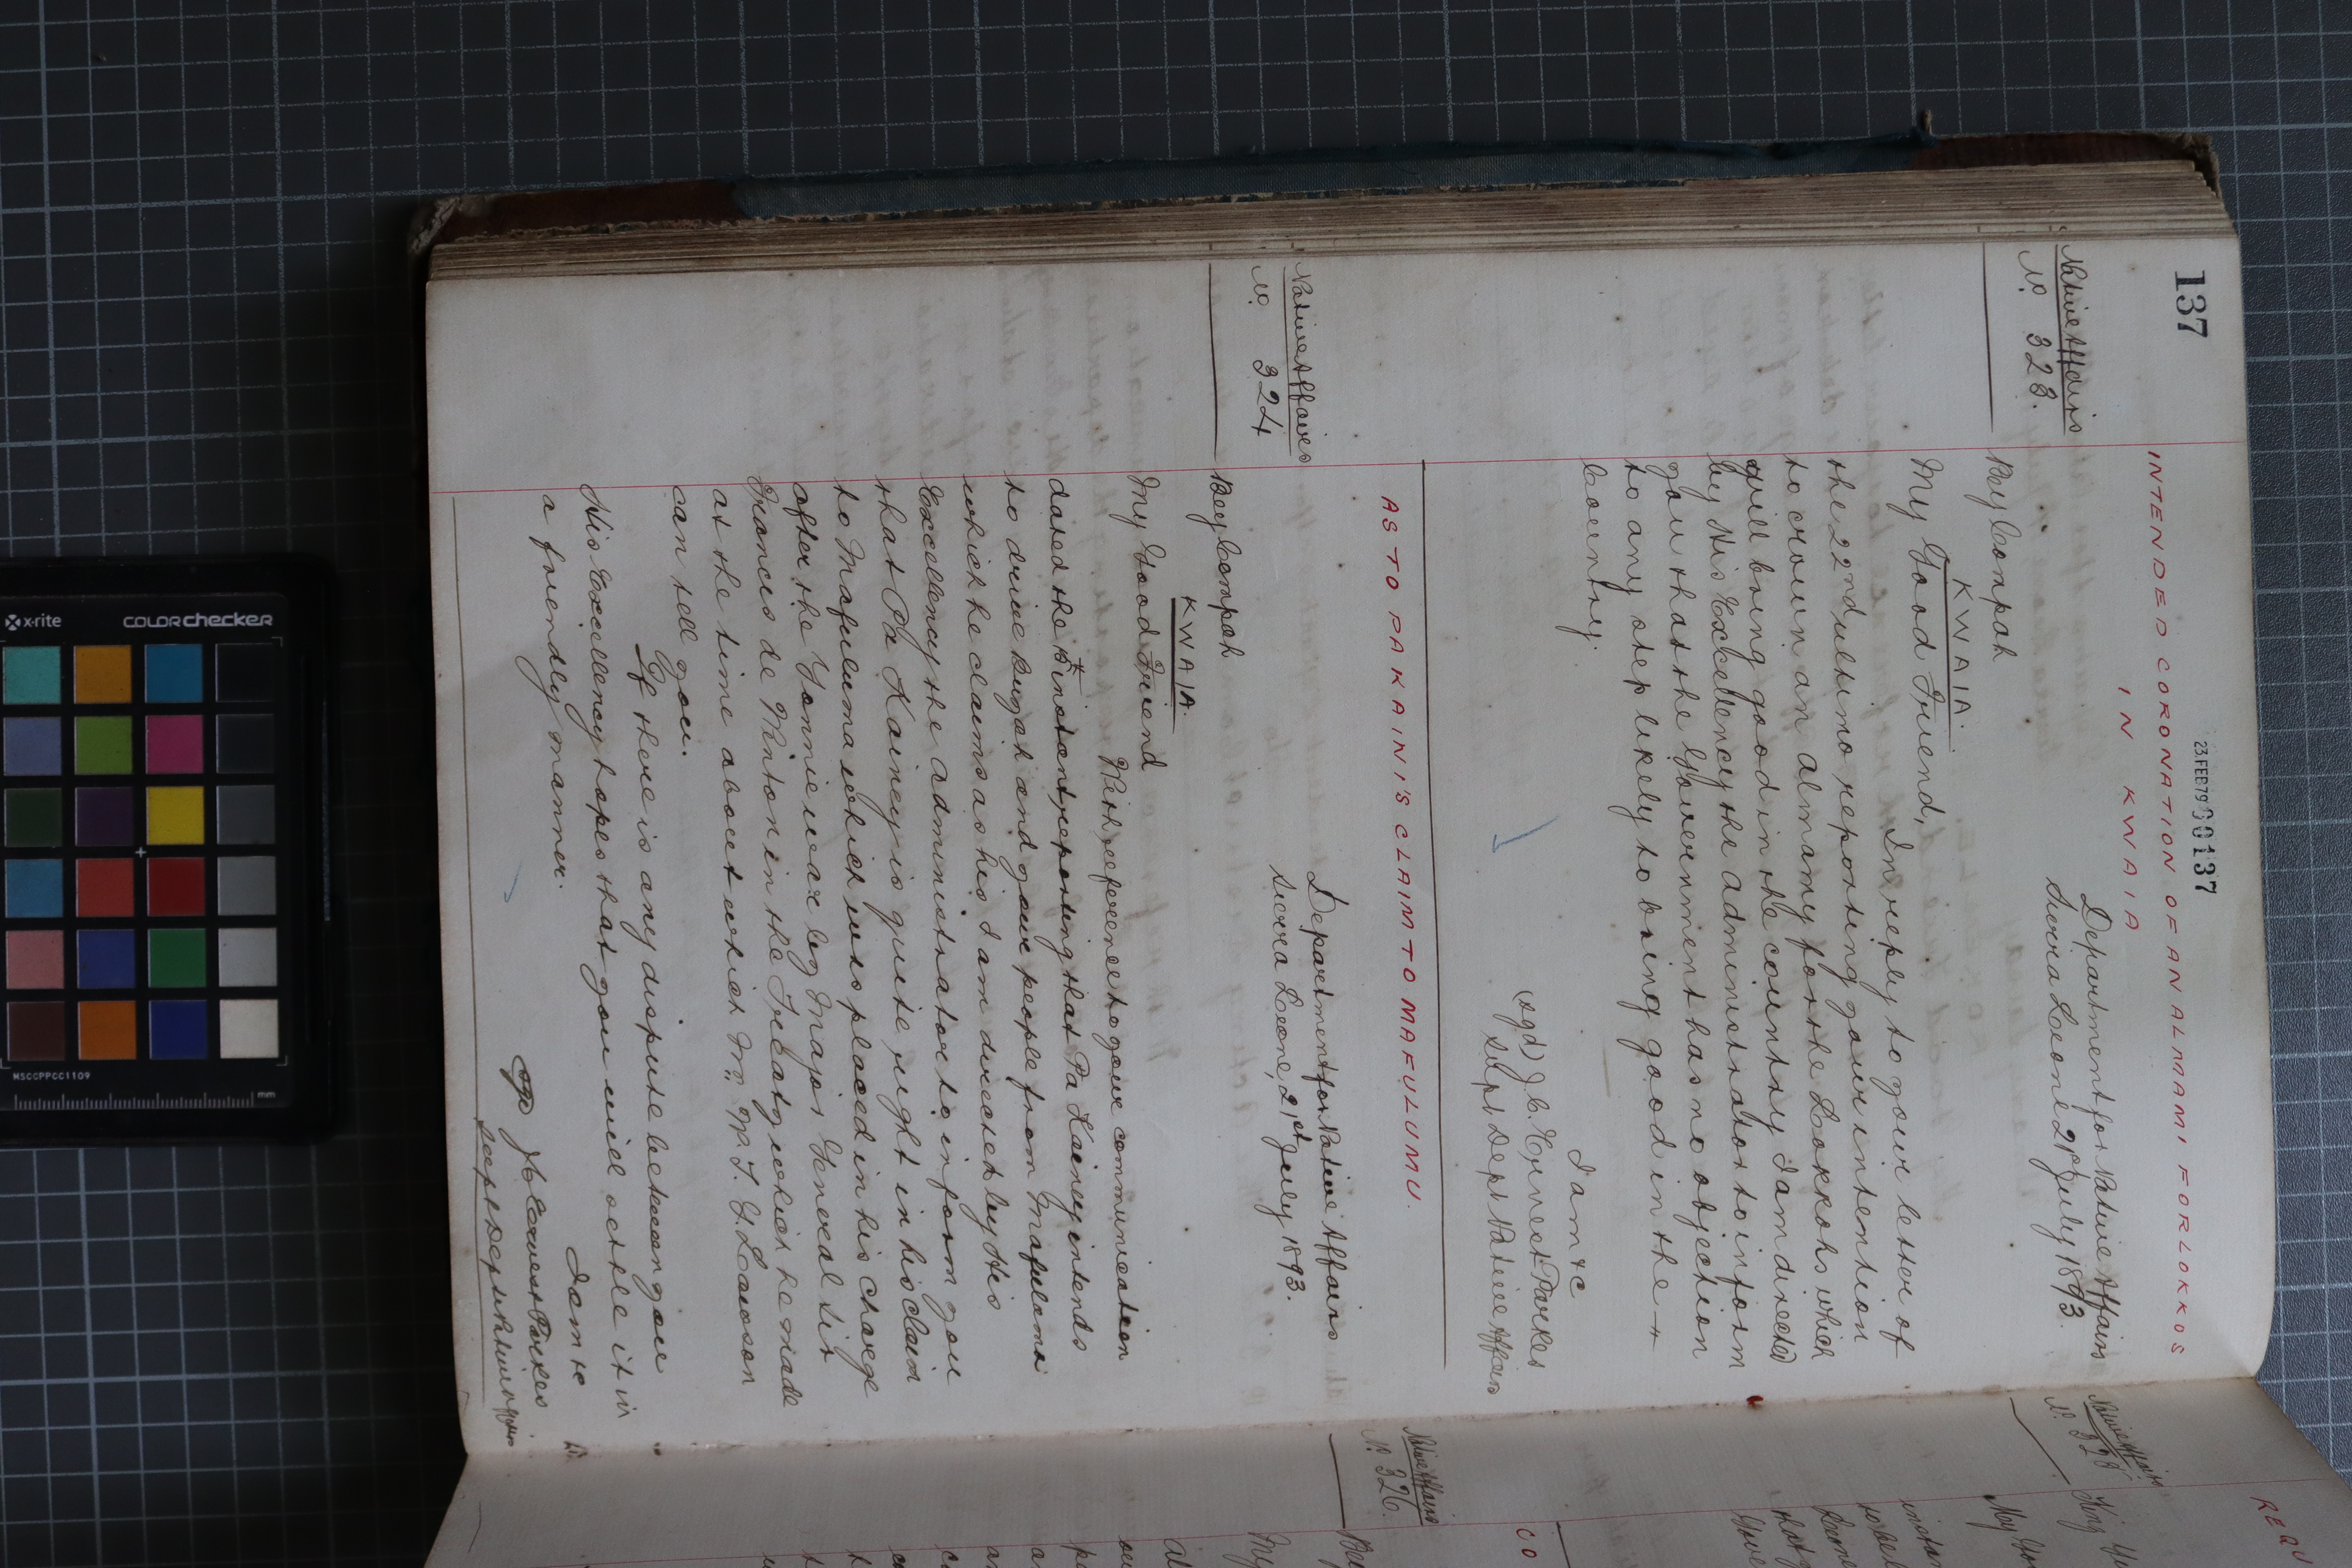 137
23 FEB 79 00137
INTENDED CORONATION OF AN ALMAMI FOR LOKKOS
IN KWAIA
Native Affairs
No. 323.
Department for Native Affairs
Sierra Leone 21st July 1893.
Bey Compah
KWAIA.
My Good Friend,
In reply to your letter of
the 22nd ultimo reporting your intention
to crown an almamy for the Lokkohs which
will bring good in the country I am directed
by His Excellency the administrator to inform
you that the Government has no objection
to any step likely to bring good in the
Country.
I am &c
(sgd) J. C. Ernest Parkes
Supt Dept Native Affairs
AS TO PA KAINI'S CLAIM TO MAFULUMU.
Native Affairs
No. 324
Department for Native Affairs
Sierra Leone, 21st July 1893.
Bey Compah
KWAIA.
My Good Friend
With reference to your communication
dated the instant, reporting that Pa Kainey intends
to drive Bungah and your people from Mafuluma
which he claims as his I am directed by His
Excellency the administrator to inform you
that Pa Kainey is quite right in his claim
to Mafuluma which was placed in his charge
after the Yonnie war by Major General Sir
Francis de Winton in the Treaty which he made
at the time about which Mr. T. G. Lawson
can tell you.
If there is any dispute between you
His Excellency hopes that you will settle it in
a friendly manner.
I am &c
J. C. Ernest Parkes
Supt Dept Native Affairs
Native Affairs
No. 328
King
My
REQ
Native Affairs
No. 326.
Bey
My
CO